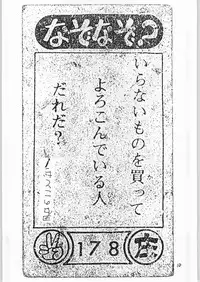 なぞなぞ?
いらないものを買って
よろこんでいる人
だれだ?
178